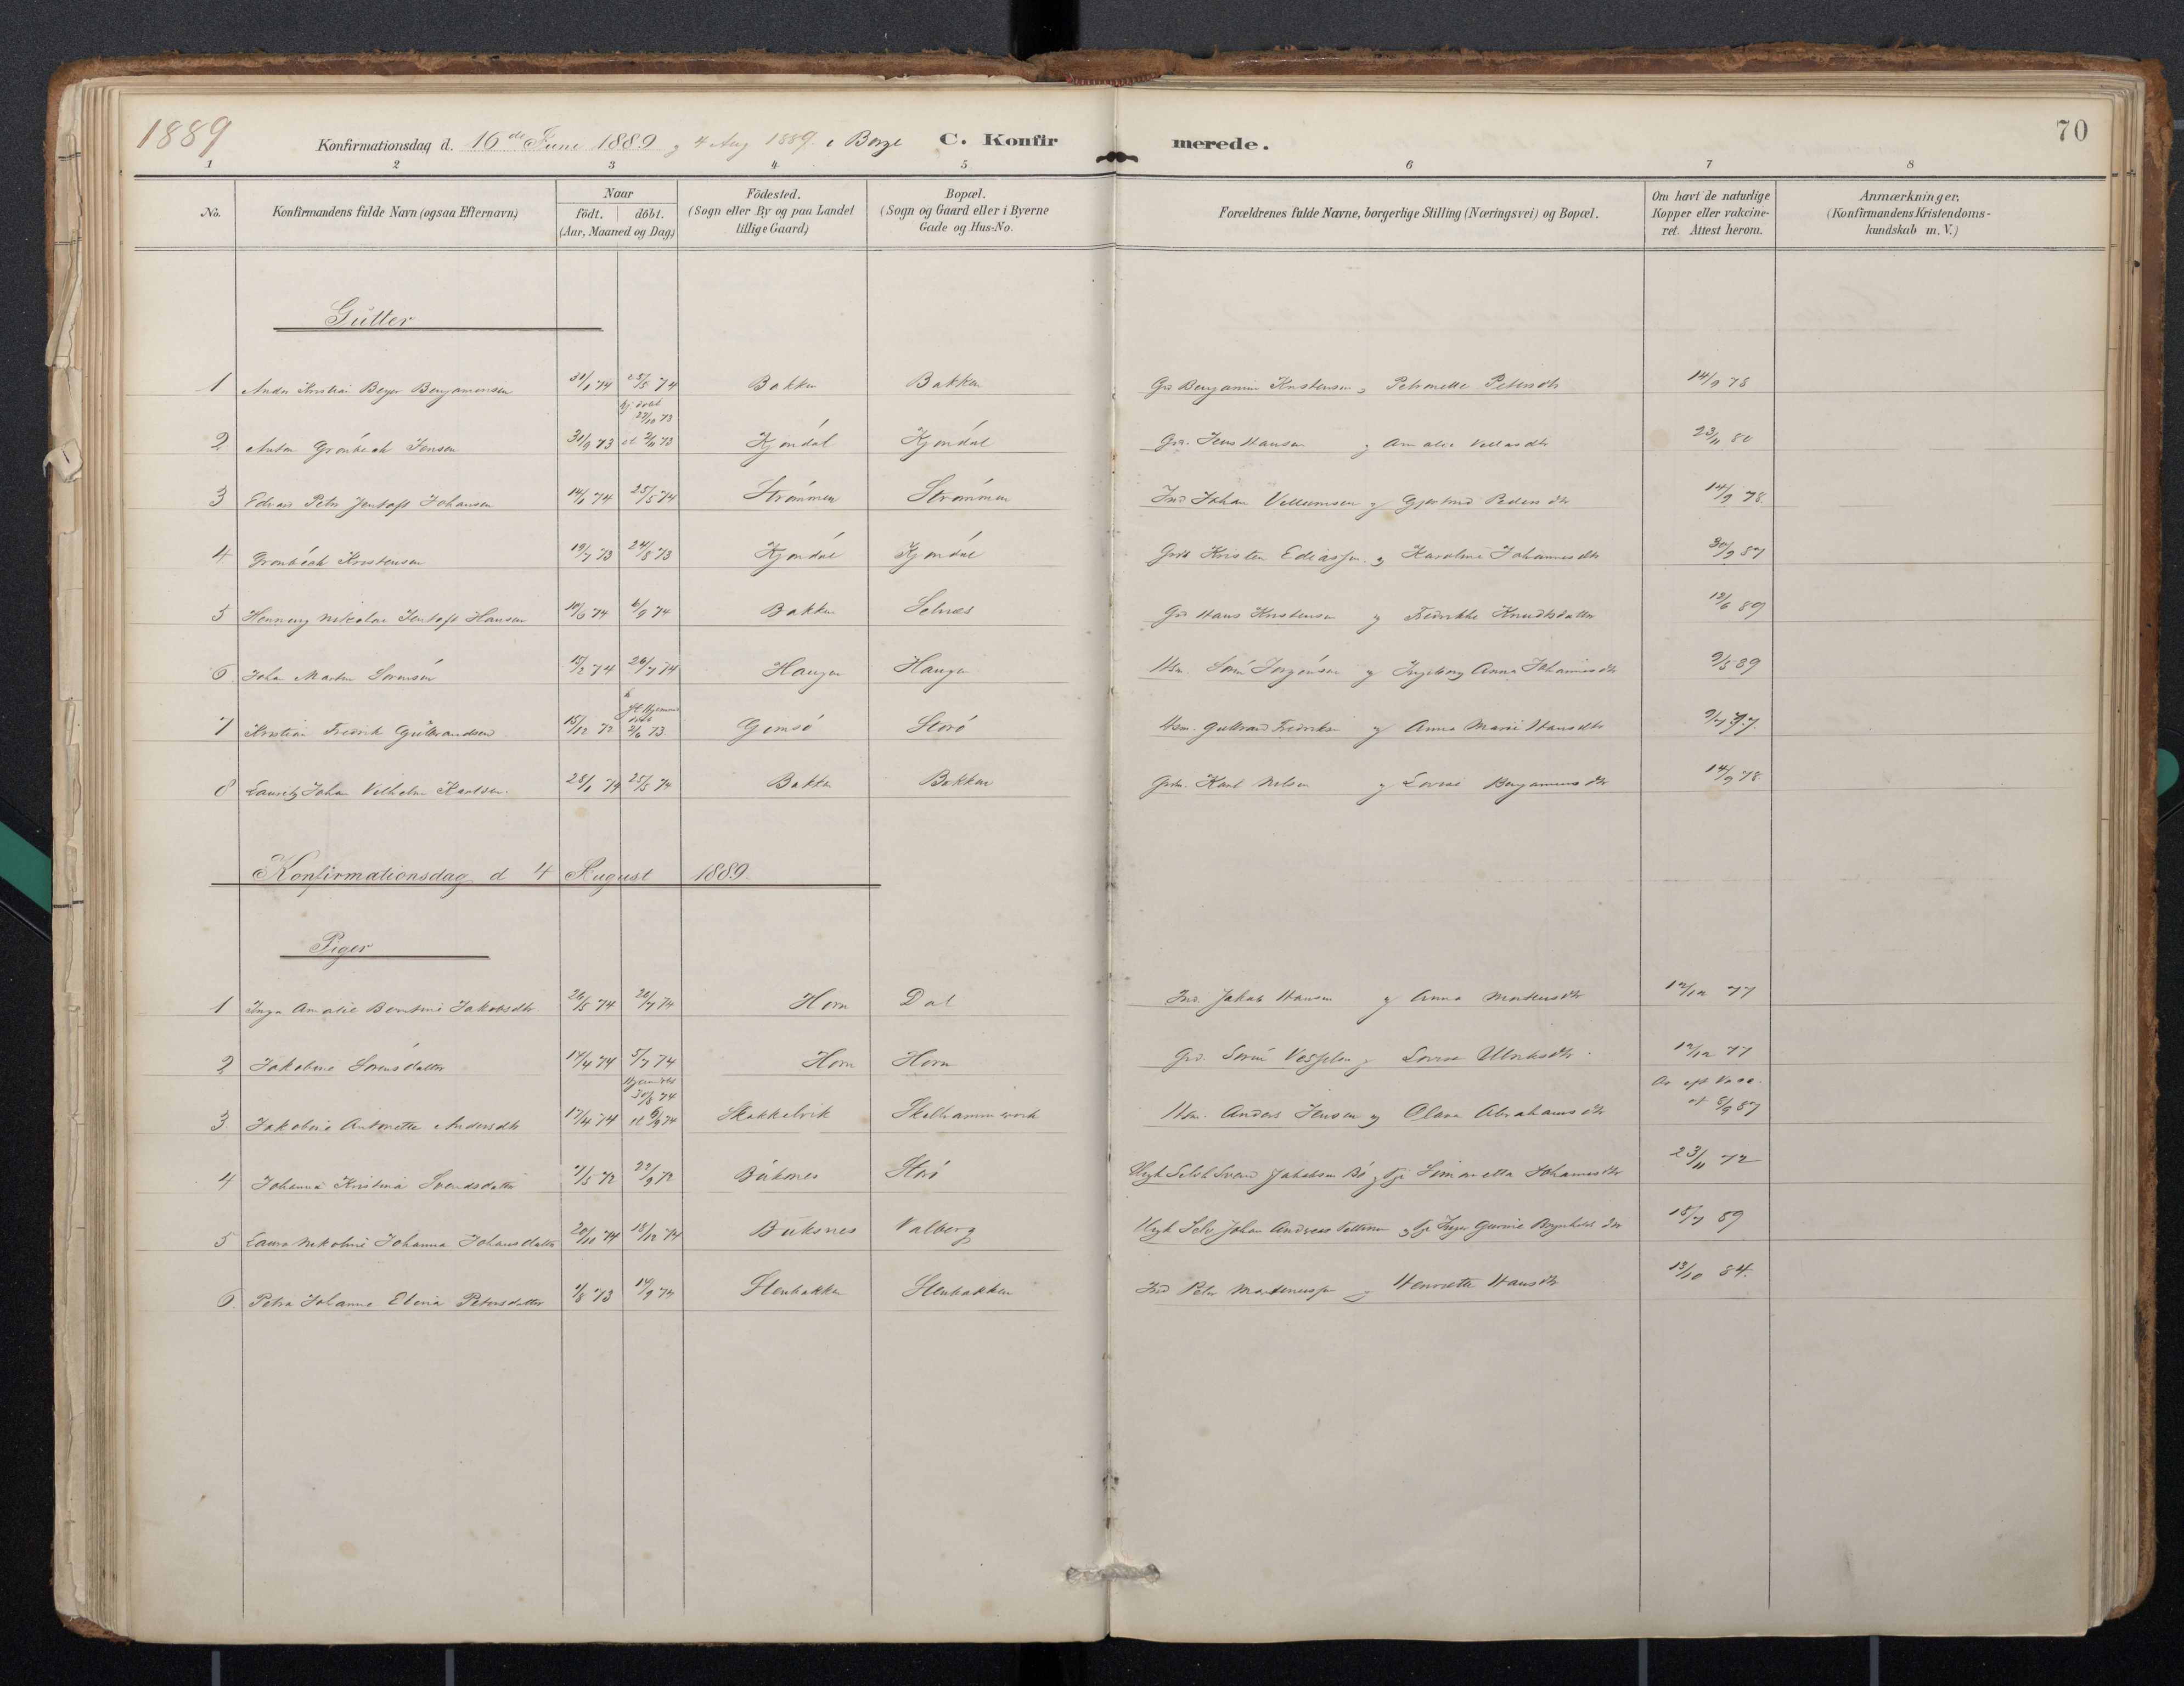 1889
Konfirmationsdag d. 16de Juni 1889 og 4 Aug 1889 i Borge C. Konfirmerede. 70
1 2 3 4 5 6 7 8
No. Konfirmandens fulde Navn (ogsaa Efternavn) Naar födt. döbt. (Aar, Maaned og Dag) Födested. (Sogn eller By og paa Landet tillige Gaard) Bopæl. (Sogn og Gaard eller i Byerne Gade og Hus-No. Forældrenes fulde Navne, borgerlige Stilling (Næringsvei) og Bopæl. Om havt de naturlige Kopper eller vakcineret. Attest herom. Anmærkninger, (Konfirmandens Kristendomskundskab m. V.)
Gutter
1 Anders Kristian Beyer Benjamensen 31/1 74 25/5 74 Bakken Bakken Gr Benjamin Kristensen og Petronelle Petersdtr 14/9 78
2 Anton Grönbech Jensen 31/9 73 hj döbt 27/10 73 st 2/11 73 Kjöndal Kjöndal Gr. Jens Hansen og Amalie dtr 23/11 80
3 Edvard Peter Jentoft Johansen 14/1 74 25/5 74 Strömmen Strömmen Ind Johan Vellumsen og Gjertrud Pedersdtr 14/9 78
4 Grönbech Kristensen 19/7 73 24/8 73 Kjöndal Kjöndal Grd Kristen Ediassen og Karoline Johannesdtr 30/9 87
5 Henning Nikolai Jentoft Hansen 10/6 74 6/9 74 Bakken Solnes Gr Hans Kristensen og Fredrikke Knudsdatter 12/6 89
6 Johan Martin Sörensen 15/2 74 26/7 74 Haugen Haugen Hsm. Sören Jörgensen og Ingeborg Anna Johannesdtr 9/5 89
7 Kristian Fredrik Gulbrandsen 15/12 72 2/6 73 Gimsö Storö Hsm. Gulbrand Fredriksen og Anna Marie Hansdtr
8 Lauritz Johan Vilhelm Karlsen 28/1 74 25/5 74 Bakken Bakken Grdm. Karl Nilsen og Lovise Benjaminsdtr 14/9 78
Konfirmationsdag d 4 August 1889
Piger
1 Inga Amalie Berntine Jakobsdtr. 26/5 74 26/7 74 Horn Dal Ind Jakob Hansen og Anna Mortensdtr 12/12 77
2 Jakobine Sörensdatter 14/4 74 5/7 74 Horn Horn Grd. Sören og Lovise Ulriksdtr 12/12 77
3 Jakobine Antonette Andersdtr 17/4 74 Hjemdbt 30/8 74 st 6/9 74 Skakkelvik Hsm. Anders Jensen og Olava Abrahamsdtr 8/9 87
4 Johanna Kristina Svendsdatter 7/5 72 22/9 72 Buksnes Storö Ugk Selvst Svend Jakobsen Bö og Pje Simonetta Johannesdtr 23/11 72
5 Laura Nikoline Johanna Johansdatter 20/11 74 18/12 74 Buksnes Valberg Ugk Selv Johan Andreas og Pje Inger 18/7 89
6. Petra Johanna Elena Petersdatter 1/8 73 14/9 74 Stenbakken Stenbakken Ind Peter Mortenussen og Henriette Hansdtr 13/10 84.